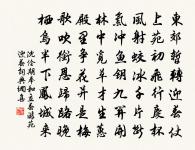 東郊暫轉迎春仗
上苑初飛行慶杯
風射蛟冰千片斷
氣沖魚鑰九關開
林中覓草才生蕙
殿里爭花并是梅
歌吹銜恩歸路晚
棲烏半下鳳城來
沈佺期奉和立春游苑
迎春